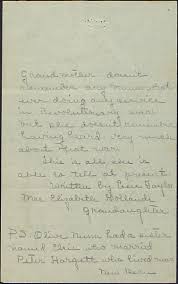 Grandmother doesn't
remember any
ever doing any service
in Revolutionary war
but she doesn't remember
having heard very much
about that war.
This is all she is
able to tell at present.
Written by
Mrs. Elizabeth Holland's
Granddaughter
P.S. Olive Nunn had a sister
named who married
Peter Hargett who lived near
New Bern